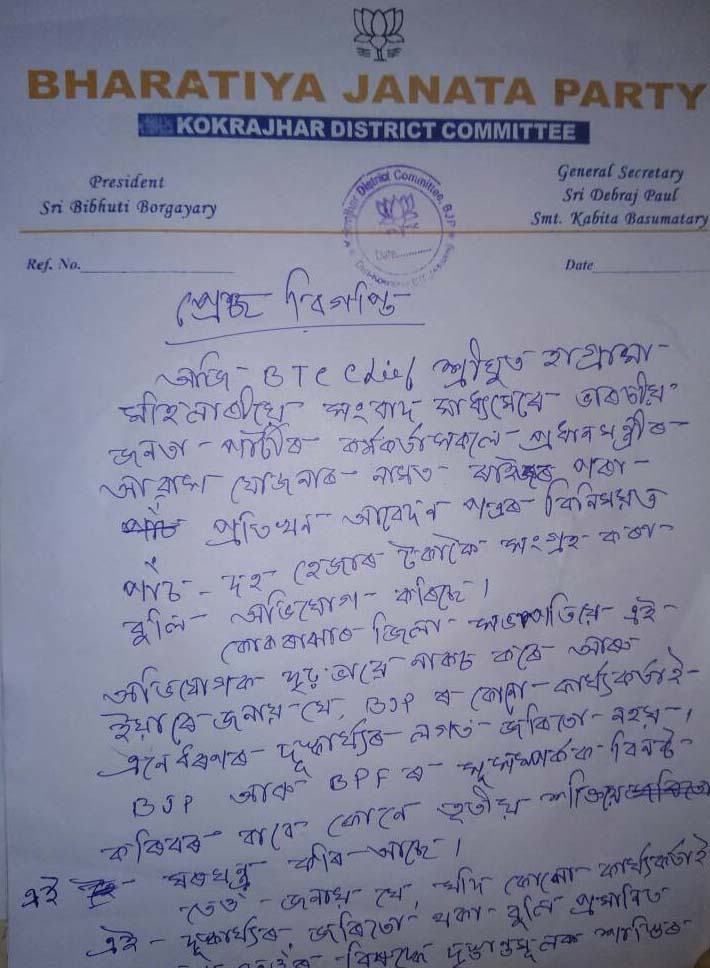 BHARATIYA JANATA PARTY
KOKRAJHAR DISTRICT COMMITTEE
President
Sri Bibhuti Borgayary
General Secretary
Sri Debraj Paul
Smt. Kabita Basumatary
Kokrajhar District Committee, BJP
Date
Ref. No.
Date
প্ৰেছ বিগপ্তি
আজি - BTC Chief শ্ৰীযুত হাগ্ৰামা -
মহিলাৰীয়ে সংবাদ মাধ্যমেৰে ভাৰতীয়
জনতা - পাৰ্টীৰ কৰ্মকৰ্তাসকলে - প্ৰধানমন্ত্ৰীৰ -
আবাস যোজনাৰ - নামত - ৰাইজৰ পৰা -
প্ৰতিখন আবেদন পত্ৰৰ বিনিময়ত
পাঁচ - দহ হেজাৰ টকাকৈ সংগ্ৰহ কৰা -
বুলি - অভিযোগ - কৰিছে।
কোকৰাঝাৰ জিলা সভাপতিয়ে এই -
অভিযোগক দৃঢ় ভাৱে নাকচ কৰে আৰু
ইয়াৰে জনায় - যে, BJP ৰ কোনো - কাৰ্য্যকৰ্তাই -
এনে ধৰণৰ - দূষ্কাৰ্য্যৰ লগত জৰিতো - নহয়।
BJP আৰু BPF ৰ - সুসম্পৰ্কক বিনষ্ট
কৰিবৰ বাবে কোনো তৃতীয় শক্তিয়ে
এই - ষৰযন্ত্ৰ কৰি - আছে।
তেওঁ - জনায় যে, যদি কোনো কাৰ্য্যকৰ্তাই
এই - দূষ্কাৰ্য্যৰ জৰিতো - থকা - বুলি প্ৰমাণিত
বিৰূদ্ধে দৃষ্টান্তমূলক শাস্তিৰ